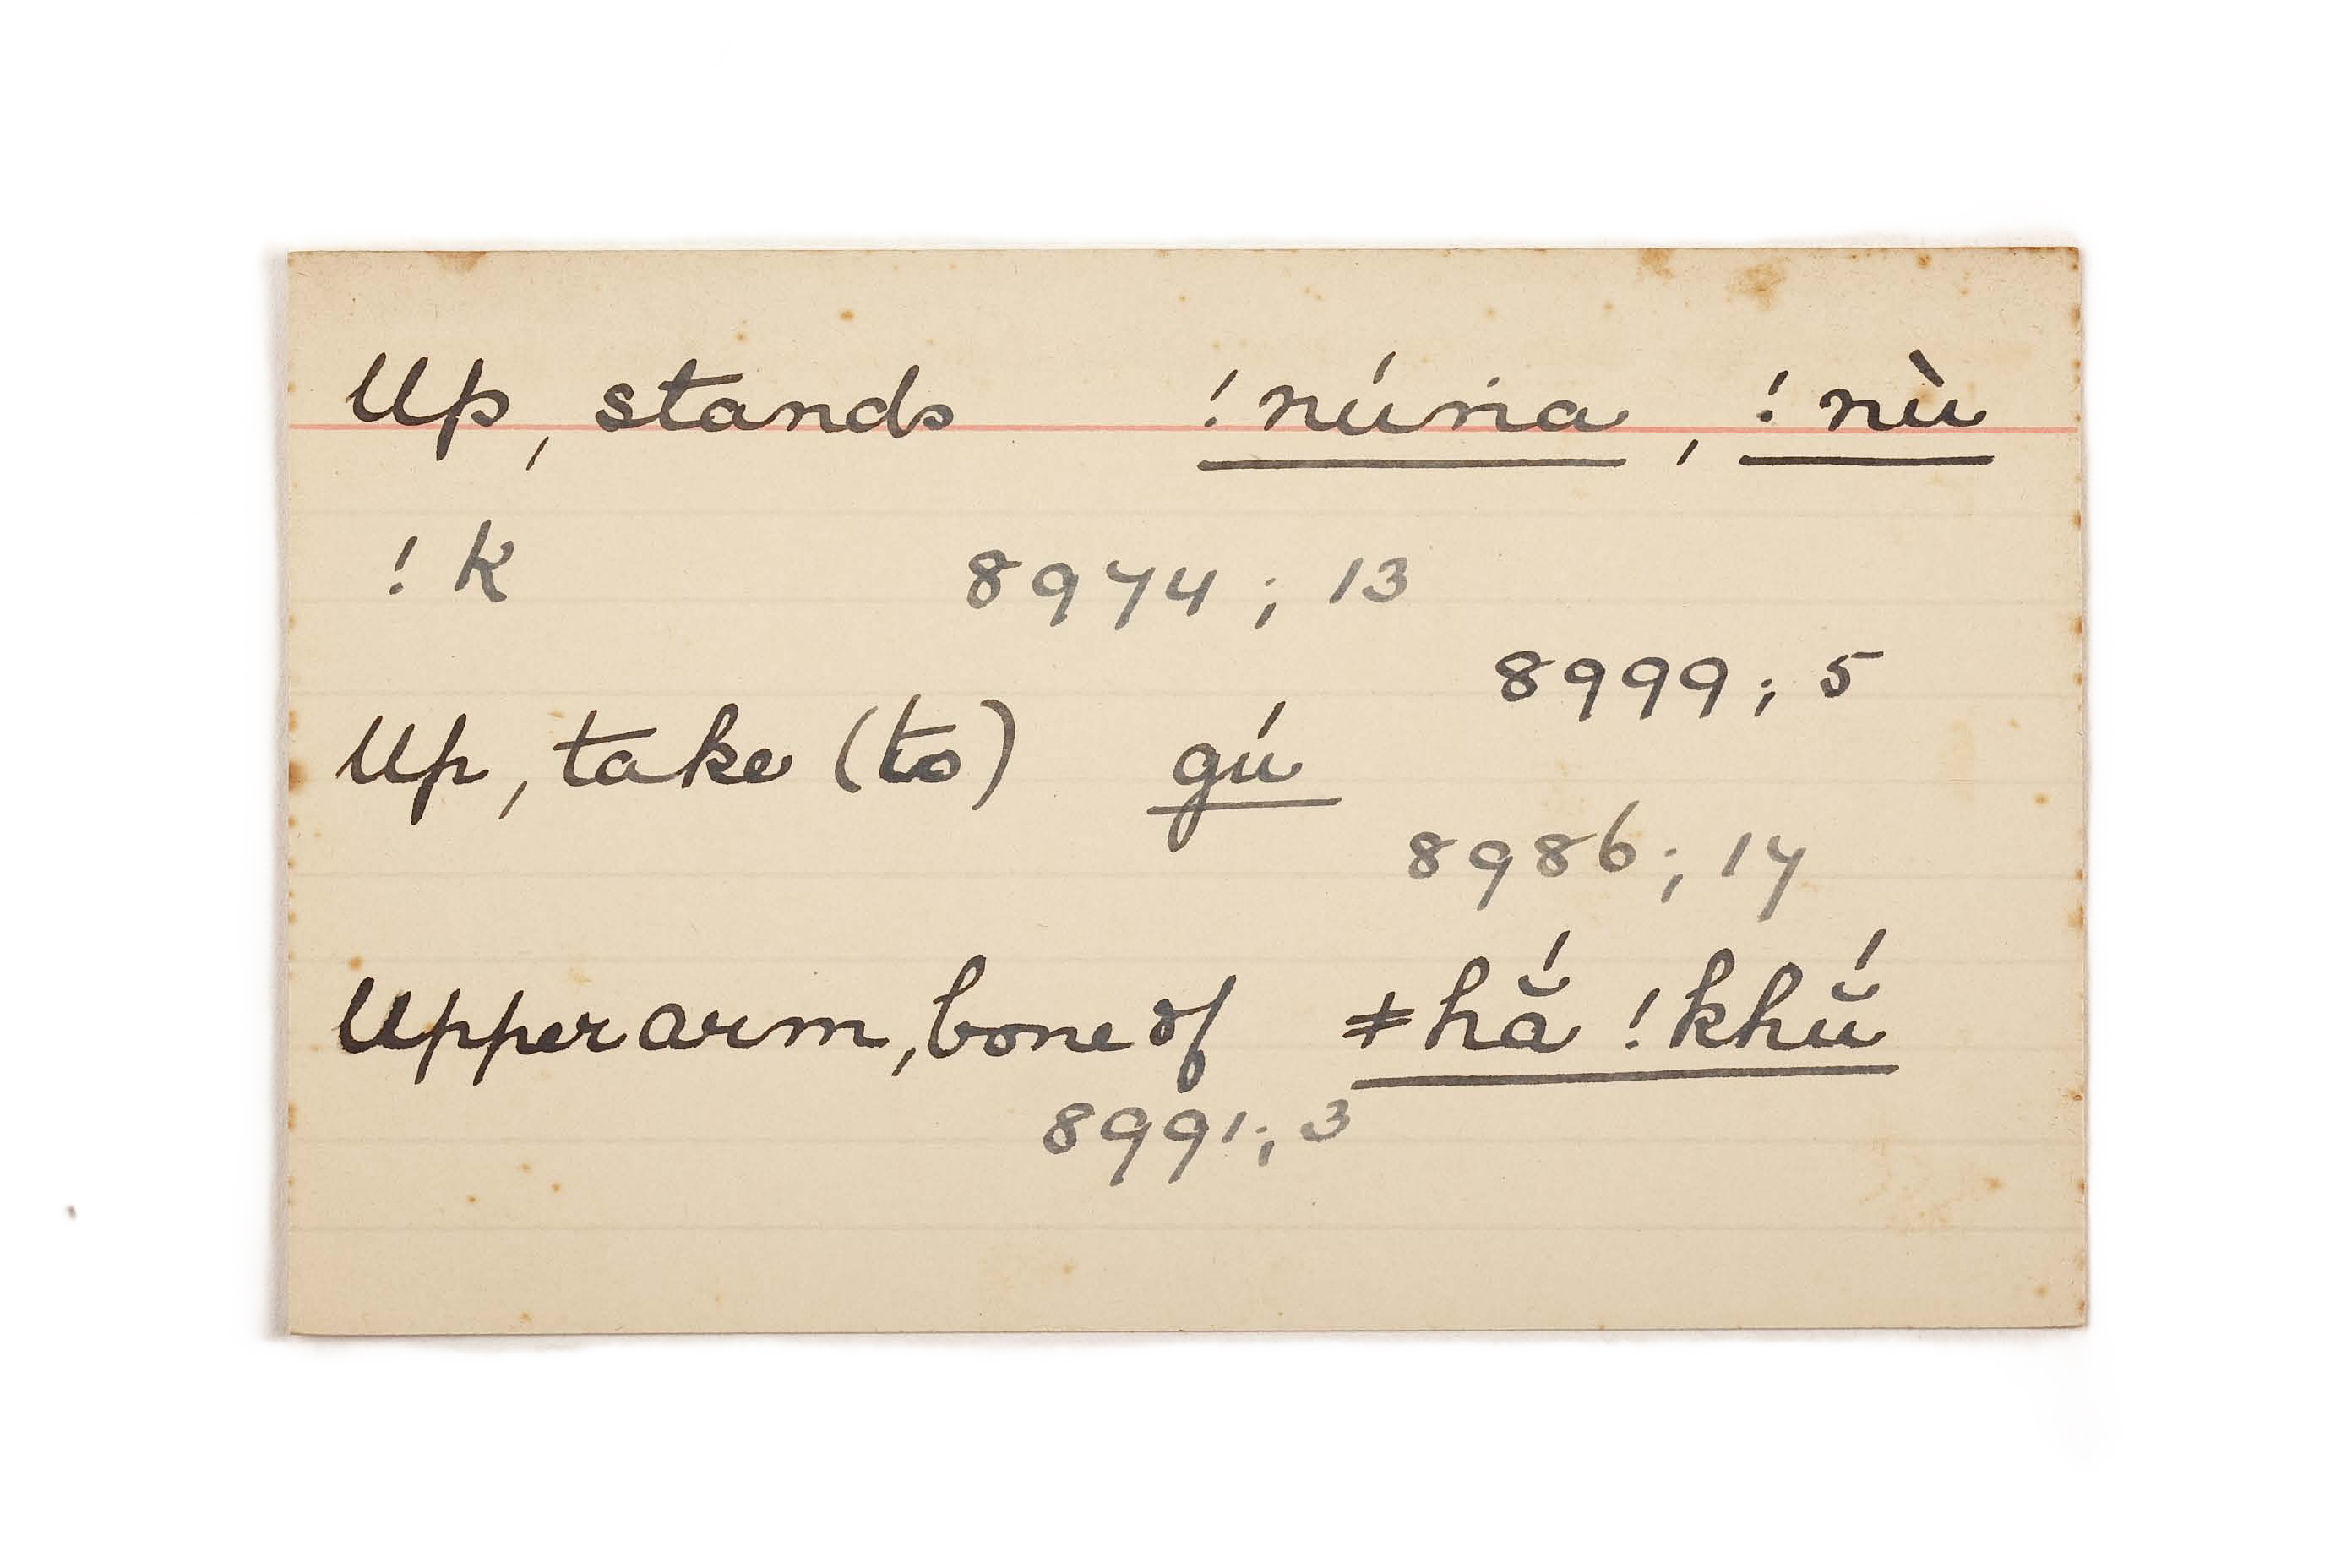 Up, stands !núṅa, !nù
!k 8974; 13
8999; 5
Up, take (to) gú
8986; 17
Upper arm, bone of ǂhā̆́ !khŭ́
8991; 3